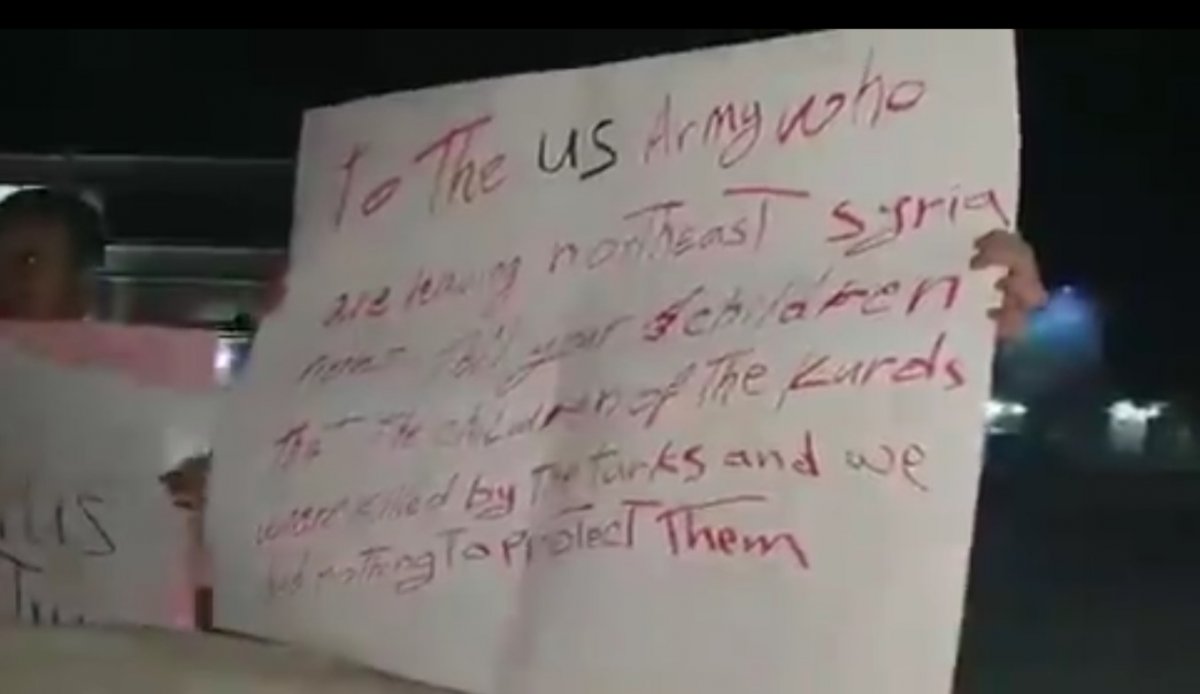 To The US Army who
are leaving northeast Syria
now Tell your children
that The children of The Kurds
were killed by The turks and we
did nothing To protect Them
US